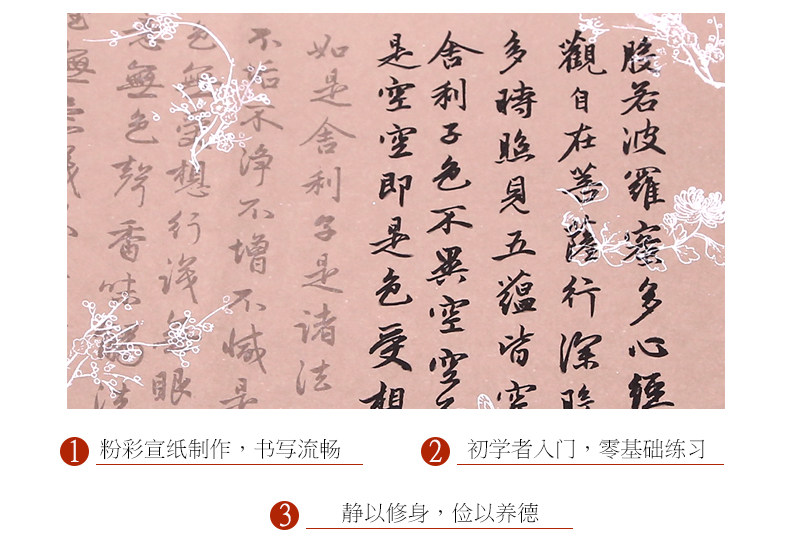 般若波羅蜜多心經
觀自在菩薩行深般
多時照見五蘊皆空
舍利子色不異空空不
是空空即是色受想
如是舍利子是諸法
不垢不淨不增不減是
色無受想行識無眼
意無色聲香味觸法
無意識
1 粉彩宣纸制作，书写流畅
2 初学者入门，零基础练习
3 静以修身，俭以养德